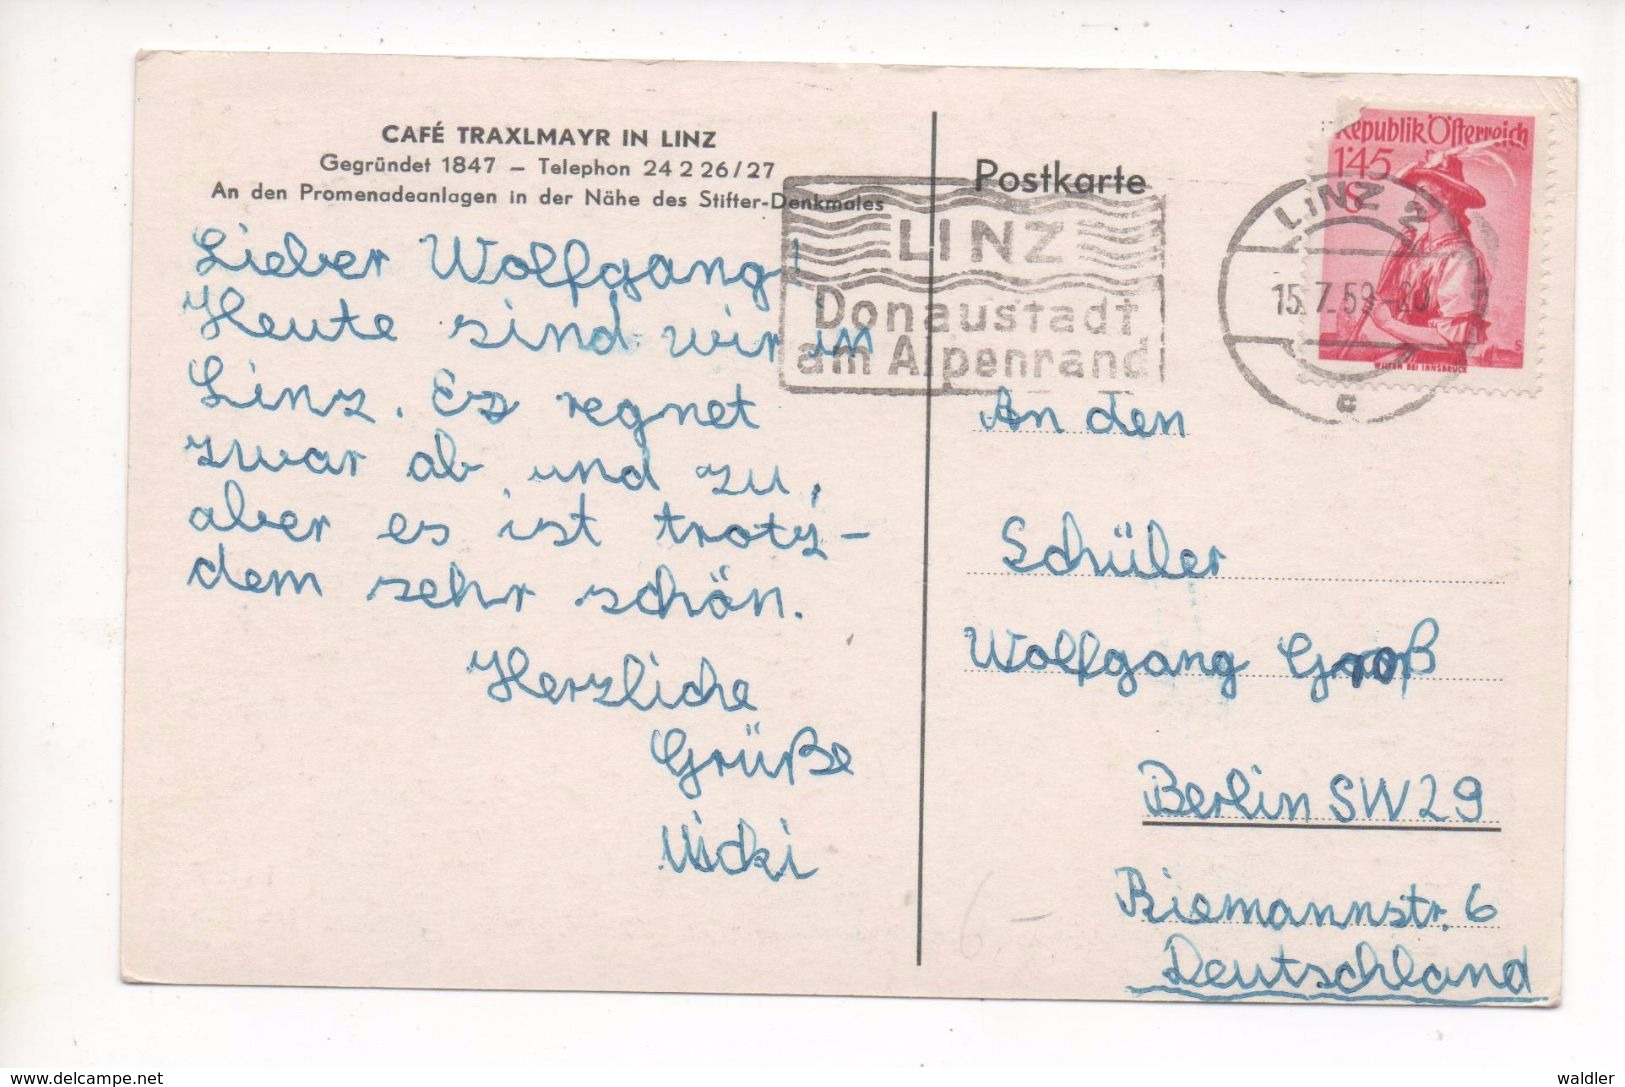 CAFÉ TRAXLMAYR IN LINZ
Gegründet 1847 – Telephon 24 2 26/27
An den Promenadeanlagen in der Nähe des Stifter-Denkmales
Lieber Wolfgang!
Heute sind wir in
Linz. Es regnet
zwar ab und zu,
aber es ist trotz-
dem sehr schön.
Herzliche
Grüße
Vicki
Postkarte
LINZ
Donaustadt
am Alpenrand
LINZ 2
15.7.59-20
c
Republik Österreich
1'45
S
WILTEN BEI INNSBRUCK
An den
Schüler
Wolfgang Groß
Berlin SW 29
Riemannstr. 6
Deutschland
6.–
www.delcampe.net
waldler